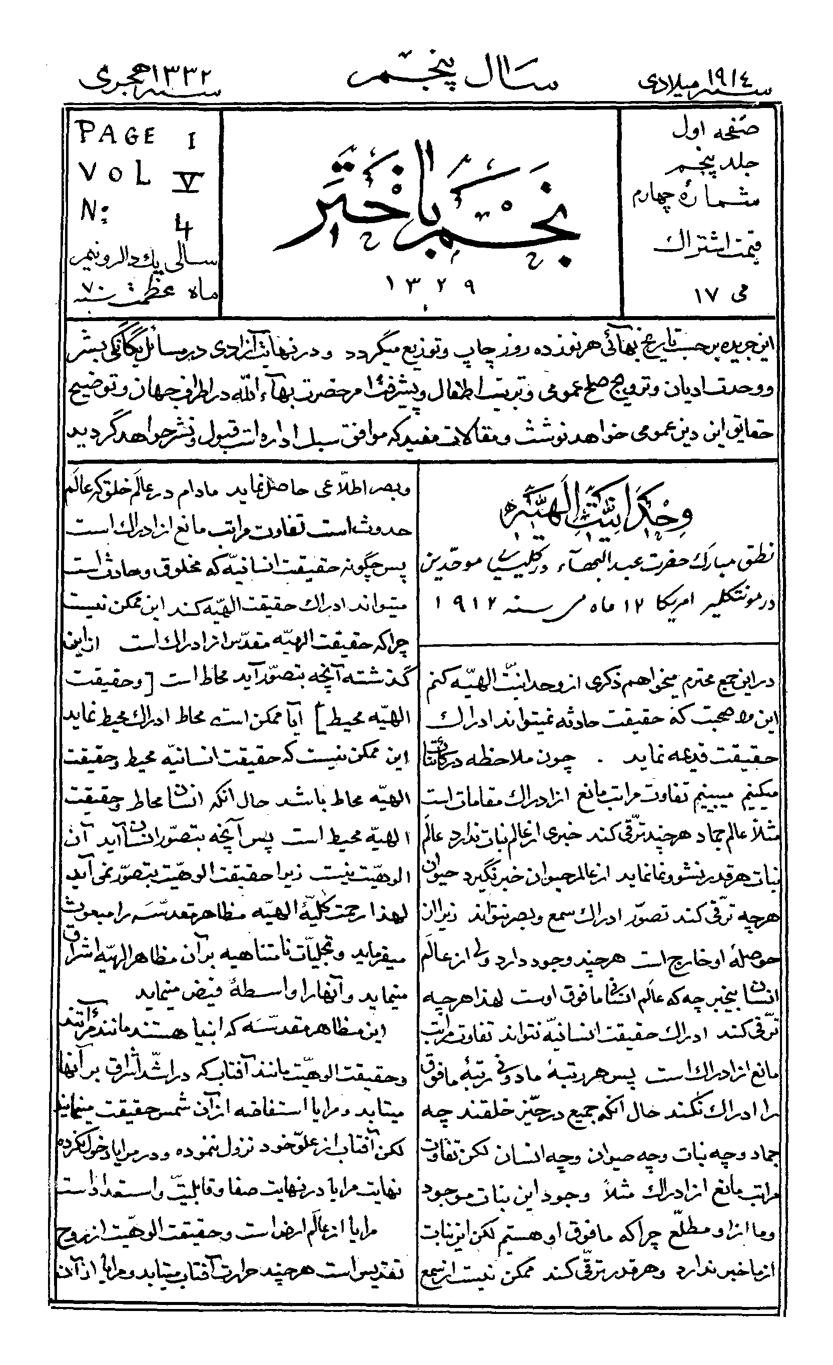 سنه ١٩١٤ میلادی
سال پنجم
سنه ١٣٣٢ هجری
صفحه اول
جلد پنجم
شمارهٔ چهارم
قیمت اشتراک
می ١٧
نجم باختر
١٣٢٩
PAGE I
VOL V
No: 4
سالی یک دالر و نیم
ماه عظمة سنه ٧٠
این جریده برحسب تاریخ بهائی هر نوزده روز چاپ و توزیع میگردد و در نهایت آزادی در مسائل یگانگی بشر
و وحدت ادیان و ترویج صلح عمومی و تربیت اطفال و پیشرفت امر حضرت بهآءالله در اطراف جهان و توضیح
حقایق این دین عمومی خواهد نوشت و مقالات مفید که موافق سبک اداره است قبول و نشر خواهد گردید
وحدانیت الهیّه
نطق مبارک حضرت عبدالبهآء در کلیسیای موحدین
در مونتکلیر امریکا ١٢ ماه می سنه ١٩١٢
در این جمع محترم میخواهم ذکری از وحدانیّت الهیّه کنم
این واضحست که حقیقت حادثه نمیتواند ادراک
حقیقت قدیمه نماید . چون ملاحظه در کائنات
میکنیم میبینیم تفاوت مراتب مانع از ادراک مقامات است
مثلاً عالم جماد هر چند ترقّی کند خبری از عالم نبات ندارد عالم
نبات هر قدر نشو و نما نماید از عالم حیوان خبر نگیرد حیوان
هر چه ترقّی کند تصوّر ادراک سمع و بصر نتواند زیرا از
حوصلهٔ او خارج است هر چند وجود دارد ولی از عالم
انسان بیخبر چه که عالم انسانی ما فوق اوست لهذا هر چه
ترقّی کند ادراک حقیقت انسانیّه نتواند تفاوت مراتب
مانع از ادراک است پس هر رتبهٔ مادونی رتبهٔ مافوق
را ادراک نکند حال آنکه جمیع در حیّز خلقند چه
جماد و چه نبات و چه حیوان و چه انسان لکن تفاوت
مراتب مانع از ادراک مثلاً وجود این نبات موجود
و ما از او مطلّع چرا که ما فوق او هستیم لکن این نبات
از ما خبر ندارد و هر قدر ترقّی کند ممکن نیست از سمع
و بصر اطلّاعی حاصل نماید مادام در عالم خلق که عالم
حدوث است تفاوت مراتب مانع از ادراک است
پس چگونه حقیقت انسانیّه که مخلوق و حادث است
میتواند ادراک حقیقت الهیّه کند این ممکن نیست
چرا که حقیقت الهیّه مقدّس از ادراک است از این
گذشته آنچه بتصوّر آید محاط است [و حقیقت
الهیّه محیط] آیا ممکن است محاط ادراک محیط نماید
این ممکن نیست که حقیقت انسانیّه محیط و حقیقت
الهیّه محاط باشد حال آنکه انسان محاط و حقیقت
الهیّه محیط است پس آنچه بتصوّر انسان آید آن
الوهیّت نیست زیرا حقیقت الوهیّت بتصوّر نمی آید
لهذا رحمت کلیّهٔ الهیّه مظاهر مقدّسه را مبعوث
میفرماید و تجلیّات نامتناهیه بر آن مظاهر الهیّه اشراق
مینماید و آنها را واسطهٔ فیض مینماید
این مظاهر مقدّسه که انبیا هستند مانند مرآتند
و حقیقت الوهیّت مانند آفتاب که در اشدّ اشراق بر آنها
میتابد و مرایا استفاضه از آن شمس حقیقت مینمایند
لکن آفتاب از علوّ خود نزول ننموده و در مرایا دخول نکرده
نهایت مرایا در نهایت صفا و قابلیّت و استعداد است
مرایا از عالم ارض است و حقیقت الوهیّت از بروج
تقدیس است هر چند حرارت آفتاب میتابد و مرایا از آن